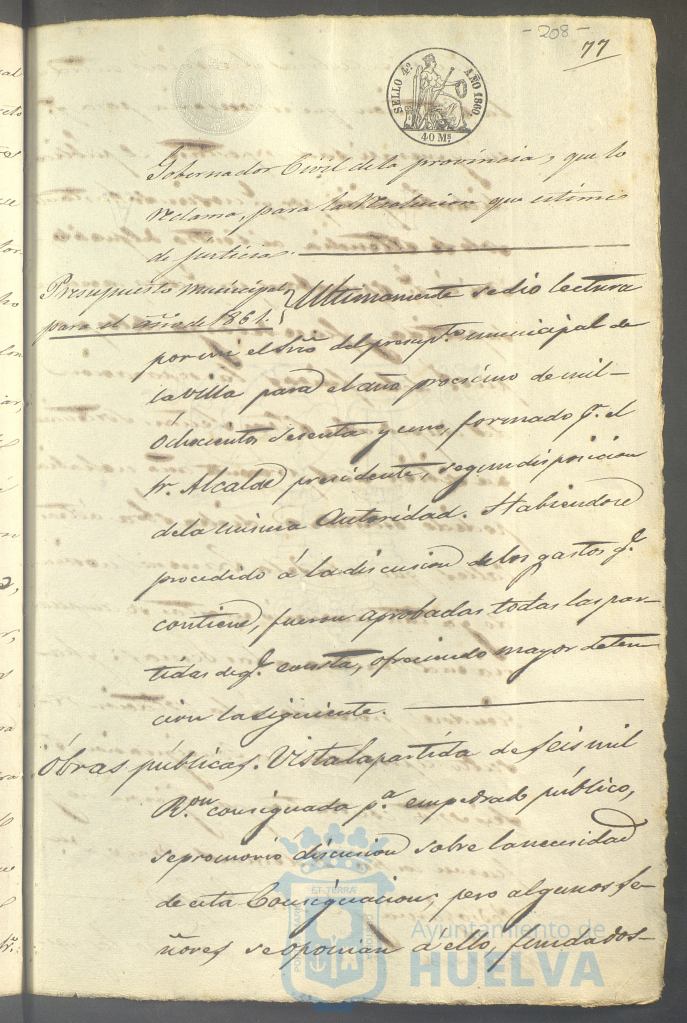 -208-
77
SELLO 4º AÑO 1860
40 Ms
Gobernador Civil dela provincia, que lo
reclama, para la resolucion que estime
de justicia.
Presupuesto municipal
para el año de 1861.
Ultimamente se dio lectura
por mi el Srio del presupto municipal de
la villa para el año procsimo de mil
ochocientos sesenta y uno, formado pr. el
Sr. Alcalde presidente, segun disposicion
dela misma Autoridad. Habiendose
procedido á la discusion delos gastos qe.
contiene, fueron aprobadas todas las par-
tidas de qe. consta, ofreciendo mayor deten
cion la siguiente.
Obras públicas. Vista la partida de seis mil
Ron consignada pa empedrado público,
se promovió discusion sobre la necesidad
de esta Consignacion; pero algunos Se-
ñores se oponian á ello, fundados-
PORTUS MARIS ET TERRÆ CUSTODIA
Ayuntamiento de
HUELVA